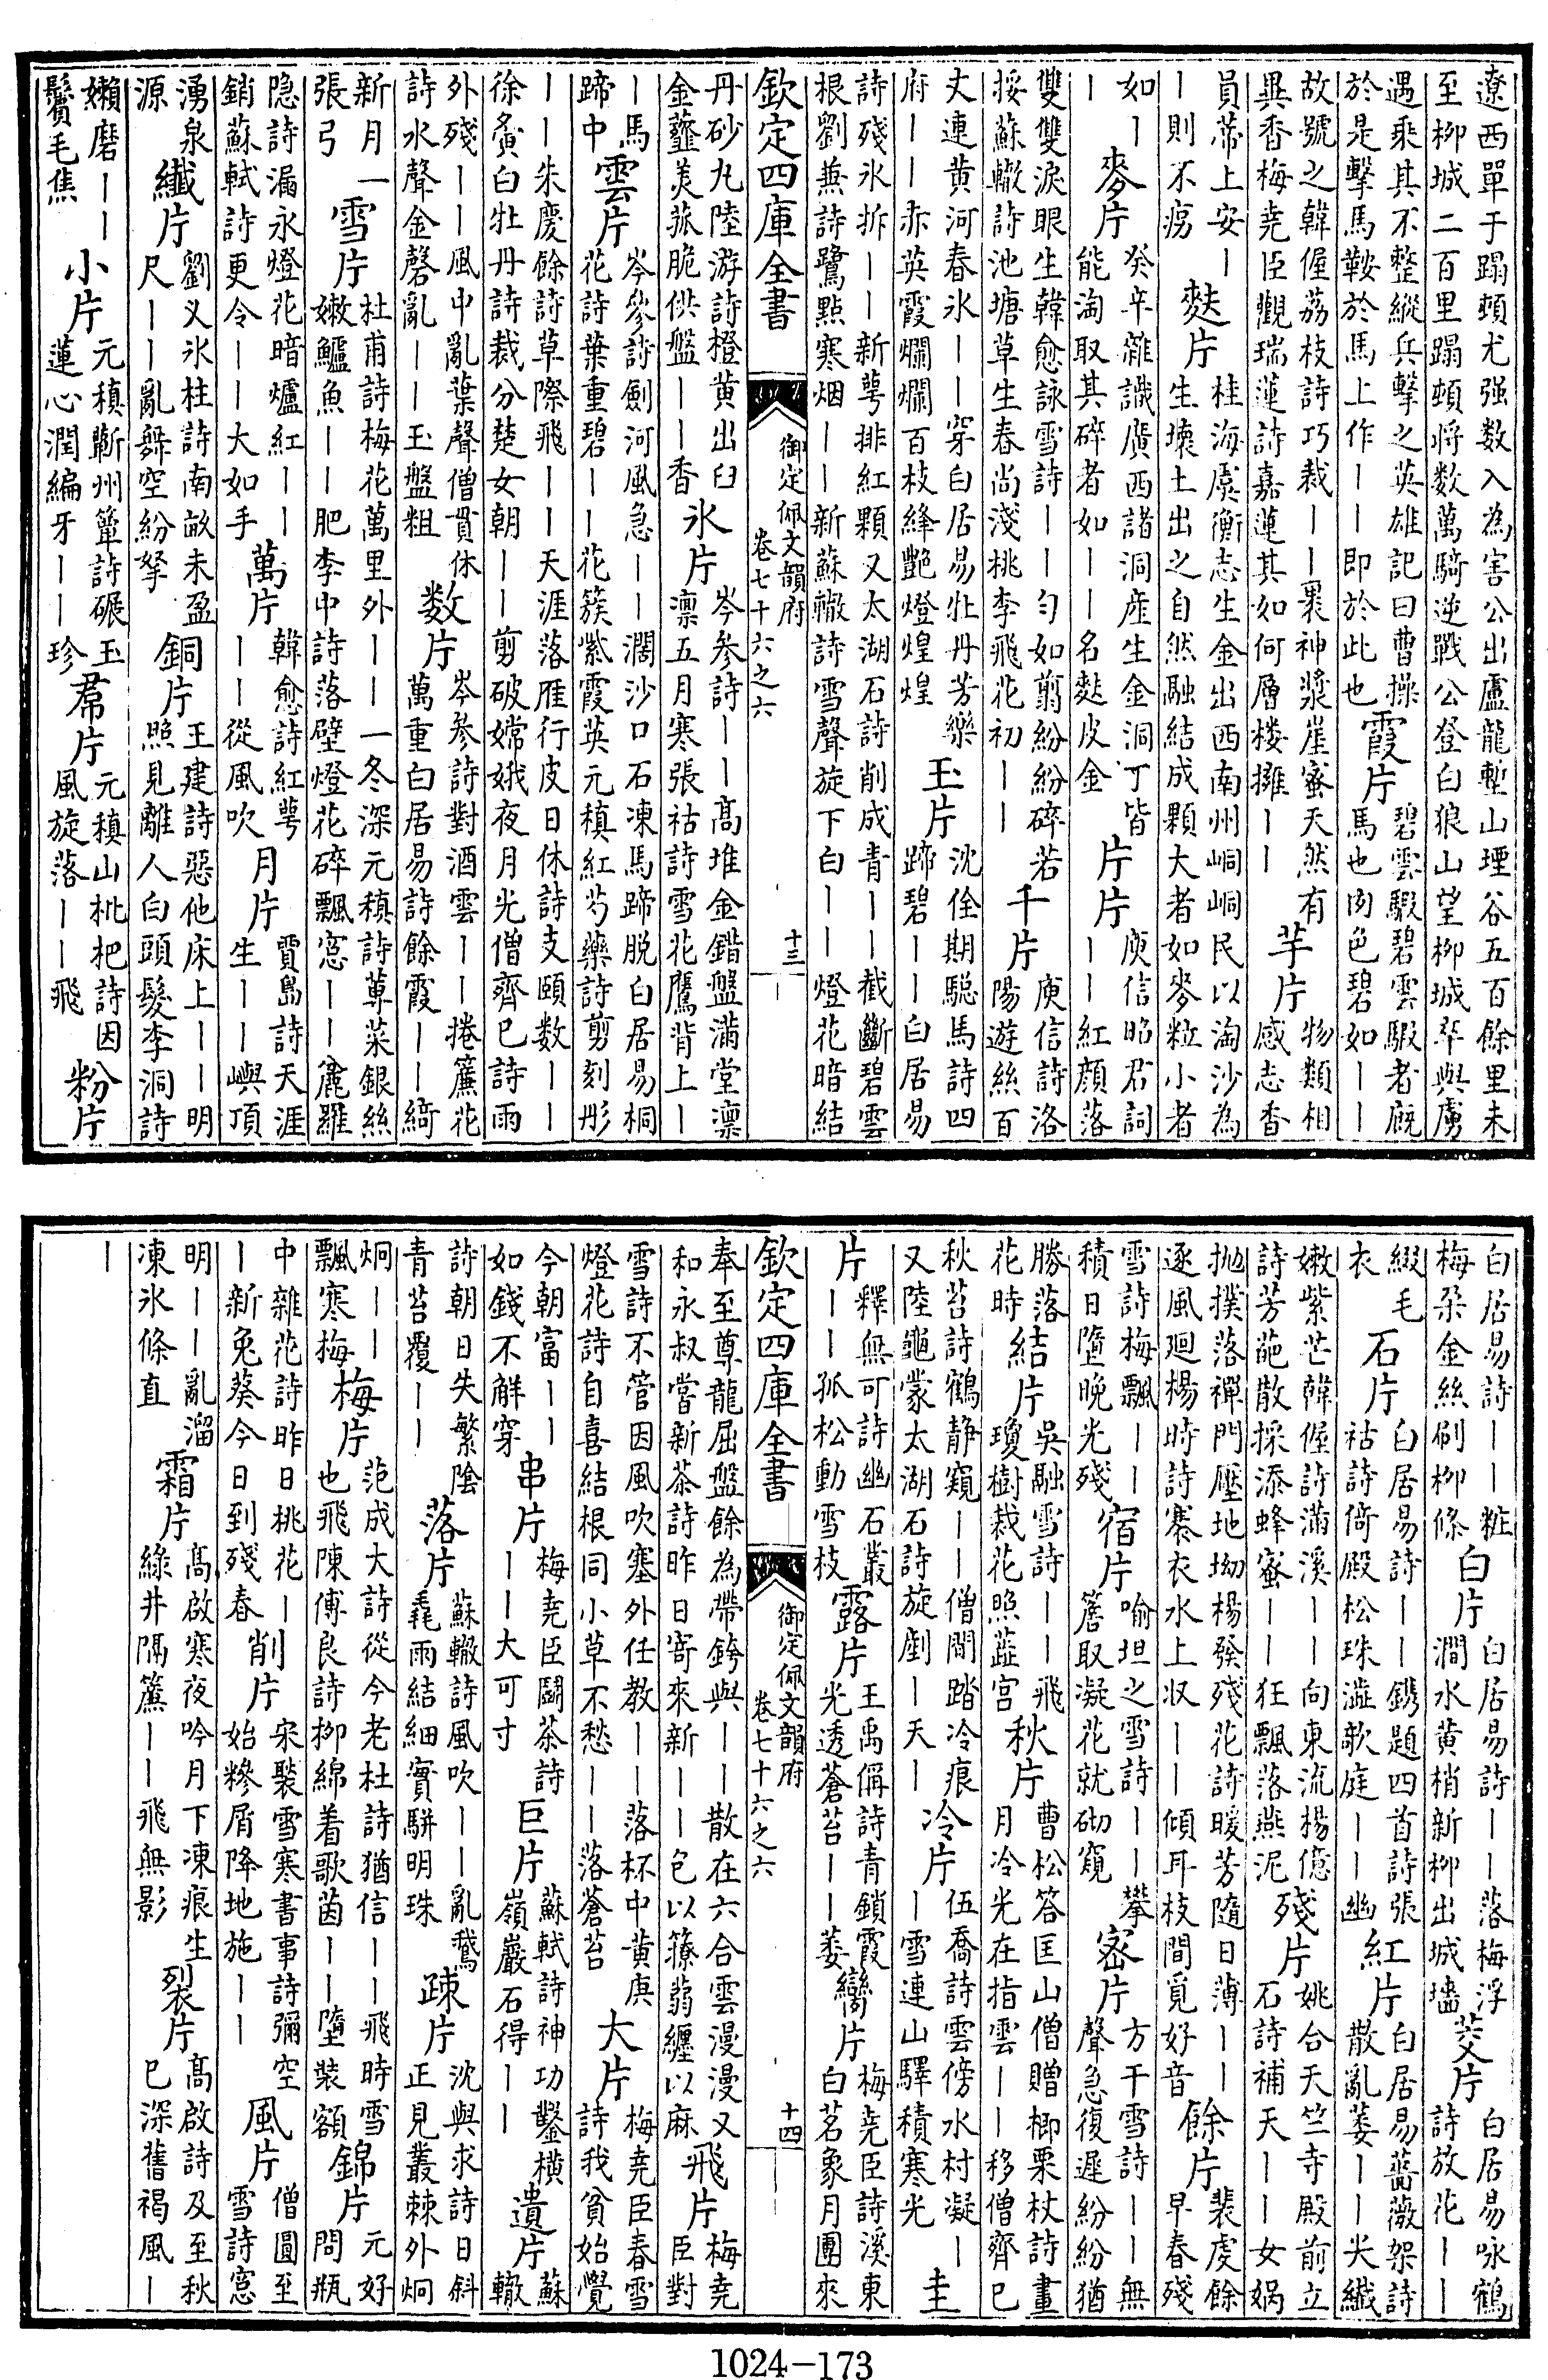 遼西單于蹋頓尤强数入為害公出盧龍塹山堙谷五百餘里未
至柳城二百里蹋頓将数萬騎逆戰公登白狼山望柳城卒與虜
遇乘其不整縱兵擊之英雄記曰曹操於是擊馬鞍於馬上作｜｜即於此也 霞片 碧雲騢碧雲騢者廐馬也肉色碧如｜｜
故號之韓偓荔枝詩巧裁｜｜裹神漿崖蜜天然有異香梅堯臣觀瑞蓮詩嘉蓮其如何層楼擁｜｜ 芋片 物類相感志香
員蒂上安｜｜則不㾏 麩片 桂海虞衡志生金出西南州峒峒民以淘沙為生壊土出之自然融結成顆大者如麥粒小者
如｜｜ 麥片 癸辛雜識廣西諸洞産生金洞丁皆能淘取其碎者如｜｜名麩皮金 片片 庾信昭君詞｜｜紅顔落
雙雙淚眼生韓愈詠雪詩｜｜匀如翦紛紛碎若挼蘇轍詩池塘草生春尚淺桃李飛花初｜｜ 千片 庾信詩洛陽遊絲百
丈連黄河春氷｜｜穿白居易牡丹芳樂府｜｜赤英霞爛爛百枝絳艷燈煌煌 玉片 沈佺期驄馬詩四蹄碧｜｜白居易
詩殘氷拆｜｜新萼排紅顆又太湖石詩削成青｜｜截斷碧雲
根劉兼詩鷺點寒烟｜｜新蘇轍詩雪聲旋下白｜｜燈花暗結
欽定四庫全書 御定佩文韻府 卷七十六之六 十三
丹砂九陸游詩橙黄出臼金虀美菰脆供盤｜｜香 氷片 岑参詩｜｜髙堆金錯盤滿堂凛凛五月寒張祜詩雪花鷹背上｜
｜馬蹄中 雲片 岑參詩劍河風急｜｜濶沙口石凍馬蹄脱白居易桐花詩葉重碧｜｜花簇紫霞英元稹紅芍藥詩剪刻彤
｜｜朱慶餘詩草際飛｜｜天涯落雁行皮日休詩支頤数｜｜
徐夤白牡丹詩裁分楚女朝｜｜剪破嫦娥夜月光僧齊已詩雨
外殘｜｜風中亂葉聲僧貫休詩水聲金磬亂｜｜玉盤粗 数片 岑参詩對酒雲｜｜捲簾花萬重白居易詩餘霞｜｜綺
新月一張弓 雪片 杜甫詩梅花萬里外｜｜一冬深元稹詩蓴菜銀絲嫩鱸魚｜｜肥李中詩落壁燈花碎飄窓｜｜麄羅
隐詩漏永燈花暗爐紅｜｜銷蘇軾詩更令｜｜大如手 萬片 韓愈詩紅萼｜｜從風吹 月片 賈島詩天涯生｜｜嶼頂
湧泉源 纖片 劉义氷柱詩南畝未盈尺｜｜亂舞空紛拏 銅片 王建詩惡他床上｜｜明照見離人白頭髮李洞詩
嬾磨｜｜鬢毛焦 小片 元稹蘄州簟詩碾玉蓮心潤編牙｜｜珍 席片 元稹山枇把詩因風旋落｜｜飛 粉片
白居易詩｜｜粧梅朶金絲刷柳條 白片 白居易詩｜｜落梅浮澗水黄梢新柳出城墻 茭片 白居易咏鶴詩放花｜｜
綴毛衣 石片 白居易詩｜｜鐫題四首詩張祜詩倚殿松珠澁欹庭｜｜幽 紅片 白居易薔薇架詩散亂萎｜｜尖纖
嫩紫芒韓偓詩滿溪｜｜向東流楊億詩芳葩散採添蜂蜜｜｜狂飄落燕泥 殘片 姚合天竺寺殿前立石詩補天｜｜女媧
抛撲落禪門壓地坳楊發殘花詩暖芳隨日薄｜｜逐風廻楊時詩褰衣水上収｜｜傾耳枝間覓好音 餘片 裴虔餘早春殘
雪詩梅飄｜｜積日墮晚光殘 宿片 喻坦之雪詩｜｜攀簷取凝花就砌窺 密片 方干雪詩｜｜無聲急復遲紛紛猶
勝落花時 結片 吳融雪詩｜｜飛瓊樹裁花照蕋宮 秋片 曹松答匡山僧贈㮕栗杖詩畫月冷光在指雲｜｜移僧齊已
秋苔詩鶴静窺｜｜僧閒踏冷痕又陸龜蒙太湖石詩旋劚｜天｜ 冷片 伍喬詩雲傍水村凝｜｜雪連山驛積寒光 圭
片 釋無可詩幽石叢｜｜孤松動雪枝 露片 王禹偁詩青鎖霞光透蒼苔｜｜萎 臠片 梅堯臣詩溪東白茗象月團來
欽定四庫全書 御定佩文韻府 卷七十六之六 十四
奉至尊龍屈盤餘為帶銙與｜｜散在六合雲漫漫又和永叔嘗新茶詩昨日寄來新｜｜包以蒻纏以麻 飛片 梅堯臣對
雪詩不管因風吹塞外任教｜｜落杯中黄庚燈花詩自喜結根同小草不愁｜｜落蒼苔 大片 梅堯臣春雪詩我貧始覺
今朝富｜｜如錢不解穿 串片 梅堯臣鬬茶詩｜｜大可寸 巨片 蘇軾詩神功鑿横嶺巖石得｜｜ 遺片 蘇轍
詩朝日失繁陰青苔覆｜｜ 落片 蘇轍詩風吹｜｜亂鵞毳雨結細實駢明珠 疎片 沈與求詩日斜正見叢棘外炯
炯｜｜飄寒梅 梅片 范成大詩從今老杜詩猶信｜｜飛時雪也飛陳傅良詩柳綿着歌茵｜｜墮装額 錦片 元好問瓶
中雜花詩昨日桃花｜｜新兔葵今日到殘春 削片 宋褧雪寒書事詩彌空始糝屑降地施｜｜ 風片 僧圓至雪詩窓
明｜｜亂溜凍氷條直 霜片 髙啟寒夜吟月下凍痕生綠井隔簾｜｜飛無影 裂片 髙啟詩及至秋已深舊褐風｜
｜
1024–173